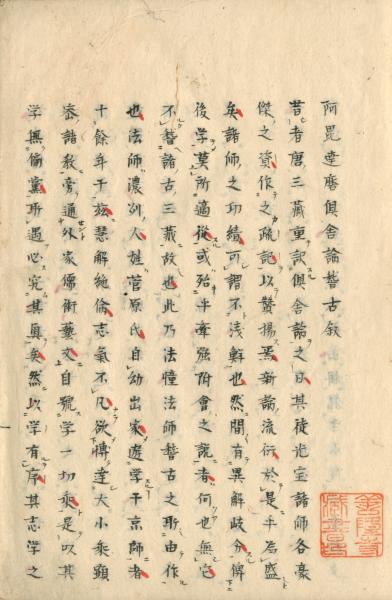 阿毘達磨倶舎論𥡴古叙
昔者唐三藏重訳倶舎論之日其徒光宝諸師各豪
傑之資作之疏記以賛揚焉新論流行於是乎為盛
矣諸師之功績可謂不浅鮮也然間有異解岐分俾
後学莫所適從或殆乎牽强附会之説者何也無它
不𥡴諸古三藏故也此乃法幢法師𥡴古之所由作
也法師濃州人姓菅原氏自幼出家遊学于京師者
十餘年于玆慧解絶倫志氣不凡欲博達大小乘顕
密諸教旁通外家儒術藝文自號学一切乘是以其
学無偏黨所遇必究其奥矣然以学有序其志学之